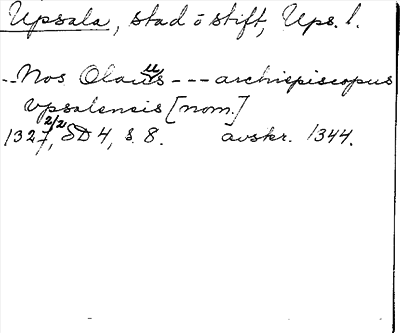 Upsala, stad o stift, Ups. l.
--Nos Olauus --- archiepiscopus
vpsalensis [nom.]
1327 2/2, SD 4, s. 8. avskr. 1344.